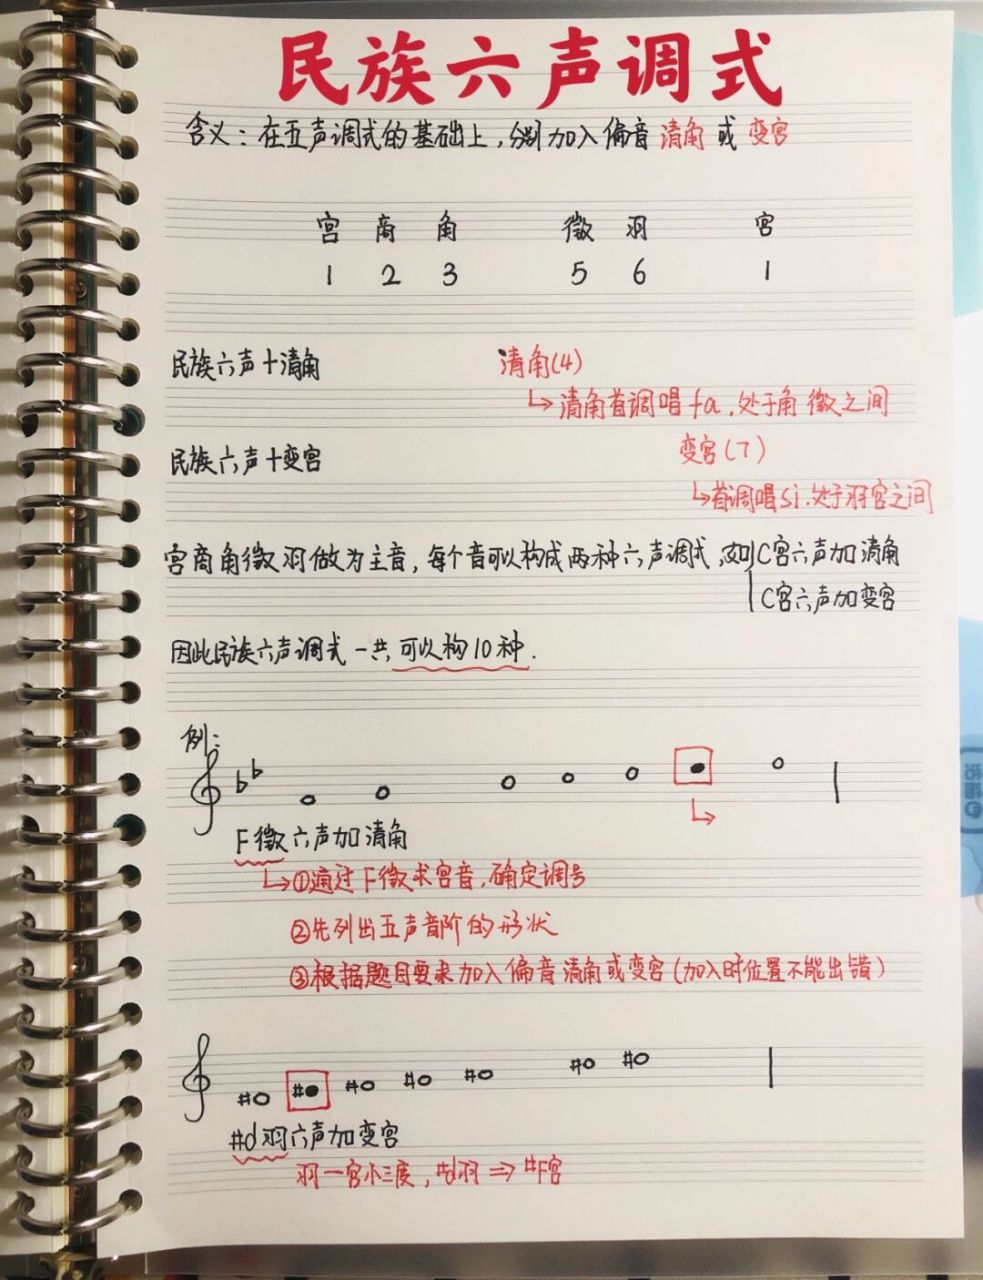 民族六声调式
含义：在五声调式的基础上，分别加入偏音 清角 或 变宫
宫 商 角 徵 羽 宫
1 2 3 5 6 1
民族六声+清角 清角(4)
↳清角首调唱fa.处于角徵之间
民族六声+变宫 变宫(7)
↳首调唱si.处于羽宫之间
宫商角徵羽做为主音，每个音可以构成两种六声调式，如C宫六声加清角
C宫六声加变宫
因此民族六声调式一共可以构10种.
例：
F徵六声加清角
↳①通过F徵求宫音，确定调号
②先列出五声音阶的形状
③根据题目要求加入偏音清角或变宫(加入时位置不能出错)
#d羽六声加变宫
羽一宫小三度，#d羽⇒#F宫